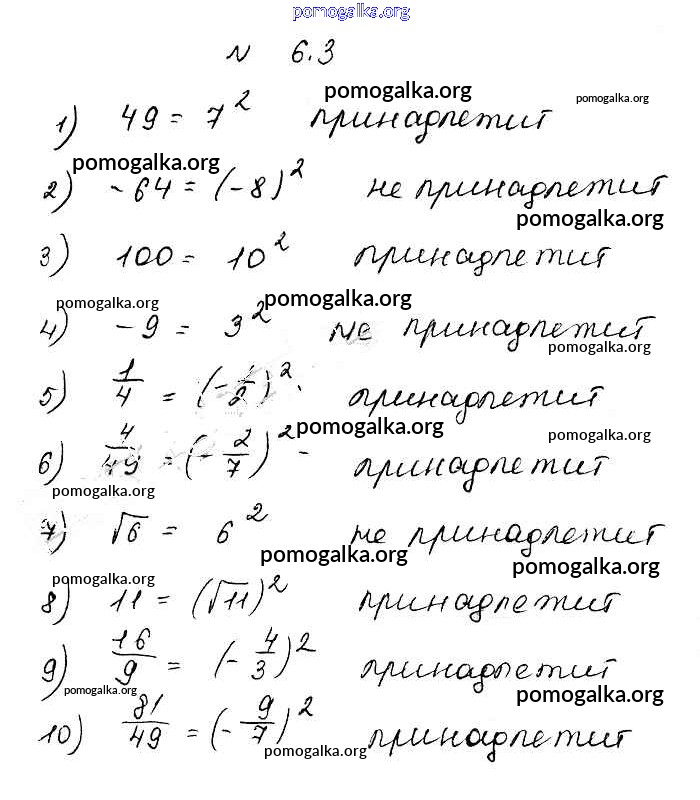 pomogalka.org
N 6.3
pomogalka.org
pomogalka.org
1) 49 = 7² принадлежит
pomogalka.org
2) -64 = (-8)² не принадлежит
pomogalka.org
3) 100 = 10² принадлежит
pomogalka.org pomogalka.org
4) -9 = 3² не принадлежит
pomogalka.org
5) 1/4 = (-1/2)². принадлежит
pomogalka.org pomogalka.org
6) 4/49 = (-2/7)² - принадлежит
pomogalka.org
7) √6 = 6² не принадлежит
pomogalka.org pomogalka.org
pomogalka.org
8) 11 = (√11)² принадлежит
9) 16/9 = (-4/3)² принадлежит
pomogalka.org pomogalka.org
10) 81/49 = (-9/7)² принадлежит
pomogalka.org